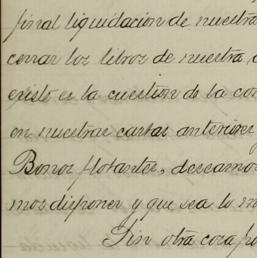 final liquidación de nuestra
cerrar los libros de nuestra
existe es la cuestion de la con
en nuestras cartas anteriores
Bonos flotantes, deseamos
mos disponer y que sea lo m
Sin otra cosa po